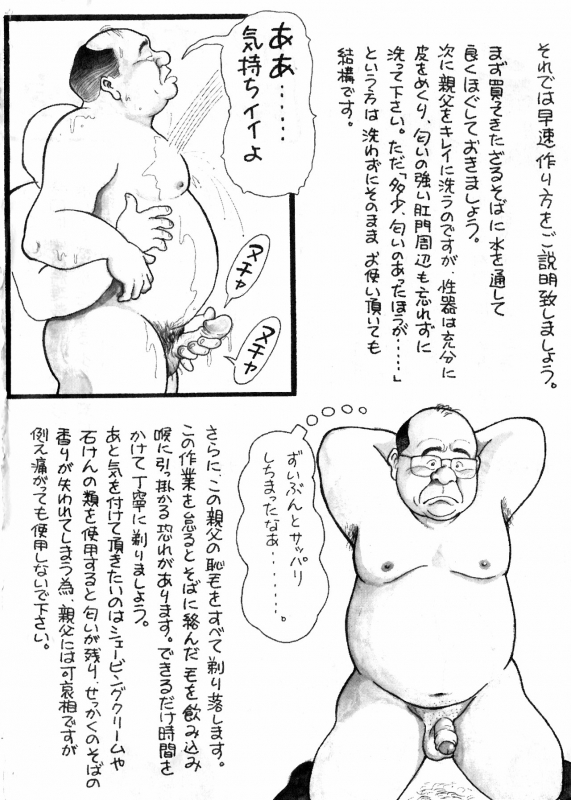 それでは早速作り方をご説明致しましょう。
まず買ってきたざるそばに水を通して
良くほぐしておきましょう。
次に親父をキレイに洗うのですが、性器は充分に
皮をめくり、匂いの強い肛門周辺も忘れずに
洗って下さい。ただ「多少、匂いのあったほうが‥‥‥」
という方は洗わずにそのままお使い頂いても
結構です。
ああ‥‥‥
気持ちイイよ
ヌチャ
ヌチャ
ずいぶんとサッパリ
しちまったなあ‥‥‥。
さらに、この親父の恥毛をすべて剃り落します。
この作業を怠るとそばに絡んだ毛を飲み込み
喉に引っ掛かる恐れがあります。できるだけ時間を
かけて丁寧に剃りましょう。
あと気を付けて頂きたいのはシェービングクリームや
石けんの類を使用すると匂いが残り、せっかくのそばの
香りが失われてしまう為、親父には可哀相ですが
例え痛がっても使用しないで下さい。